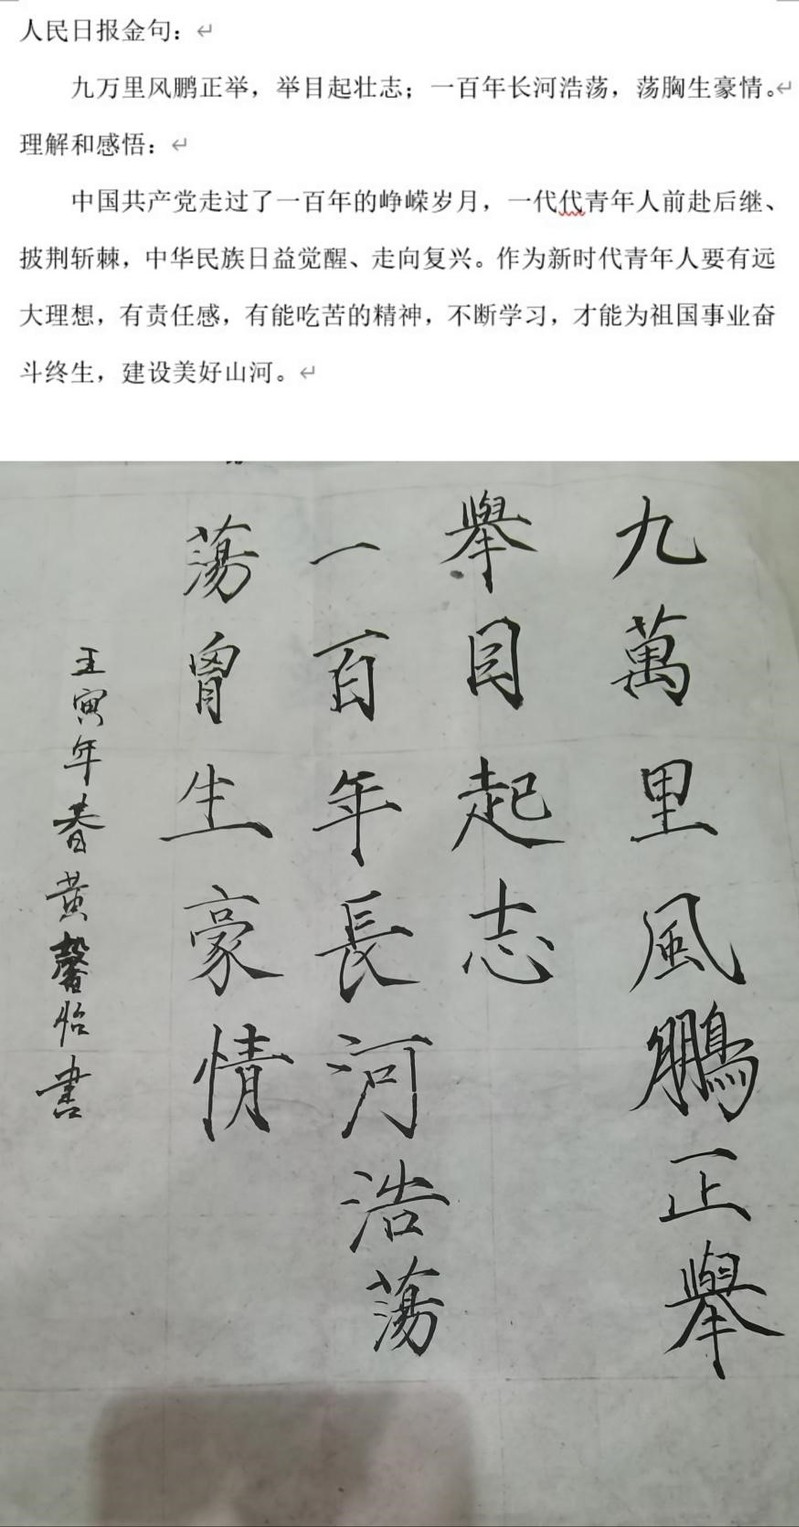 人民日报金句：
九万里风鹏正举，举目起壮志；一百年长河浩荡，荡胸生豪情。
理解和感悟：
中国共产党走过了一百年的峥嵘岁月，一代代青年人前赴后继、
披荆斩棘，中华民族日益觉醒、走向复兴。作为新时代青年人要有远
大理想，有责任感，有能吃苦的精神，不断学习，才能为祖国事业奋
斗终生，建设美好山河。
九萬里風鵬正舉
舉目起志
一百年長河浩蕩
蕩胷生豪情
壬寅年春黄馨怡書